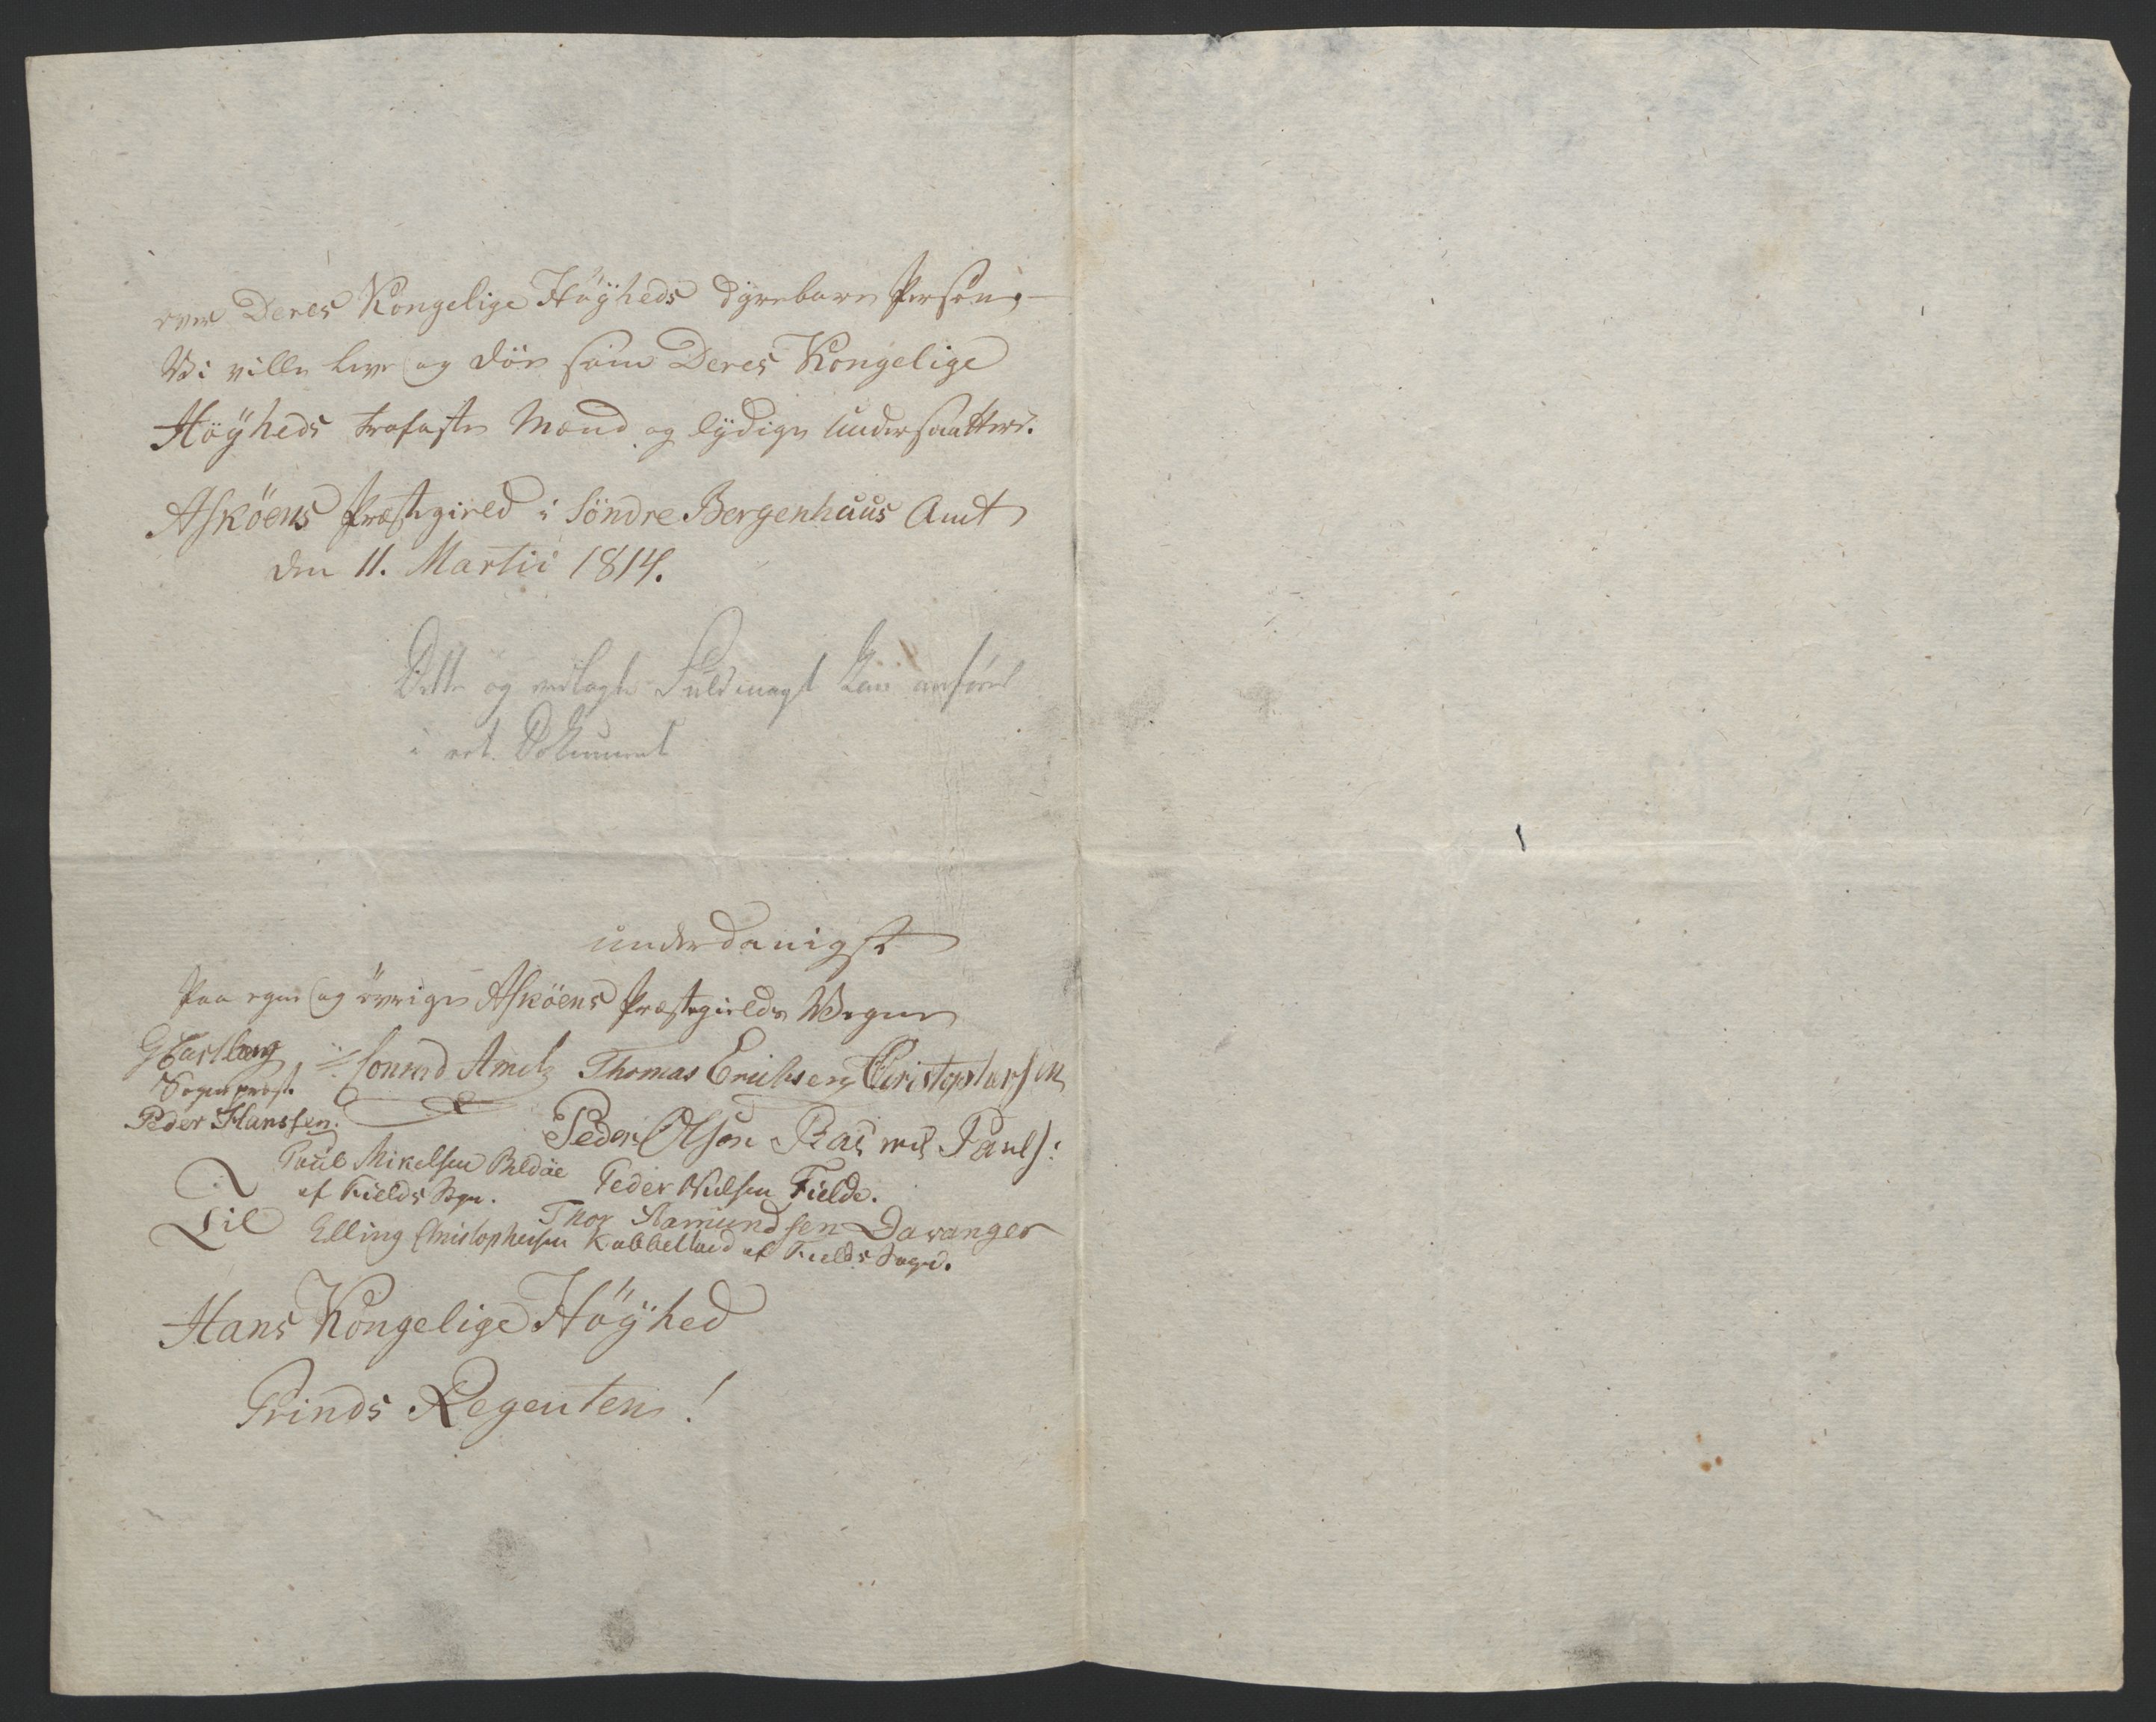 over Deres Kongelige Höÿheds dÿrebare Person; —
Vi ville leve og döe som Deres Kongelige
Höÿheds trofaste Mænd og lÿdige Undersaatter.
Askøens Præstegield i Söndre Bergenhuus Amt
den 11. Martii 1814.
Dette og vedlagte Fuldmagt kan anföres
i et Dokument
underdanigst
Paa egne og övrige Askøens Præstegields Vegne
Sogneprest. Conrad Ameln Thomas Erichsen Christophersen
Peder Hanssen. Peder Olson Rasmus Pauls:
Poul Mikelsen Bildøe Peder Nielsen Fielde.
af Fields Sogn.
Thor Aamundsen Davanger
Til Elling Christophersen Kobbeltved af Fields Sogn.
Hans Kongelige Höÿhed
Prinds Regenten!